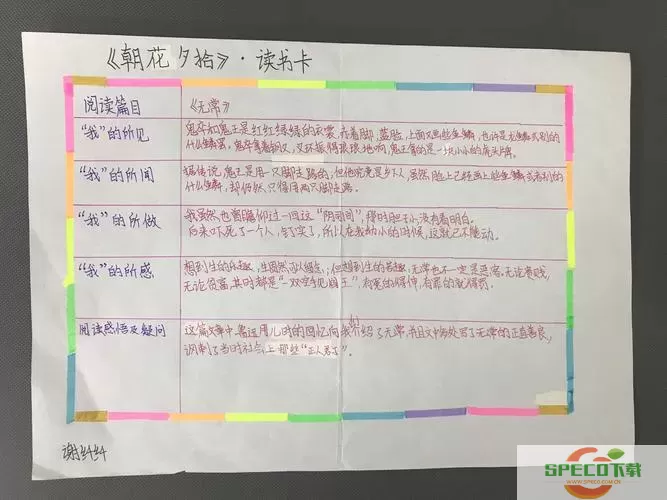 《朝花夕拾》·读书卡
阅读篇目
《无常》
“我”的所见
鬼卒和鬼王是红红绿绿的衣裳，赤着脚，蓝脸，上面又画些鱼鳞，也许是龙鳞或别的
什么鳞罢。鬼卒拿着钢叉，叉环振得琅琅地响，鬼王拿的是一块小小的虎头牌。
“我”的所闻
据传说，鬼王是用一只脚走路的；但他究竟是乡下人，虽然脸上已经画上些鱼鳞或者别的
什么鳞，却仍然只得用两只脚走路。
“我”的所做
我虽然也曾瞻仰过一回这“阴司间”，那时胆子小，没有看明白。
后来吓死了一个人，钉实了，所以在我幼小的时候，这就已不能动。
“我”的所感
想到生的乐趣，生固然可以留恋；但想到生的苦趣，无常也不一定是恶客。无论贵贱，
无论贫富，其时都是“一双空手见阎王”，有冤的得伸，有罪的就得罚。
阅读感悟及疑问
这篇文章中，运用儿时的回忆，向我们介绍了无常，并且文中多处写了无常的正直善良，
讽刺了当时社会上那些“正人君子”。
谢纤纤
SPECO下载
WWW.SPECO.COM.CN